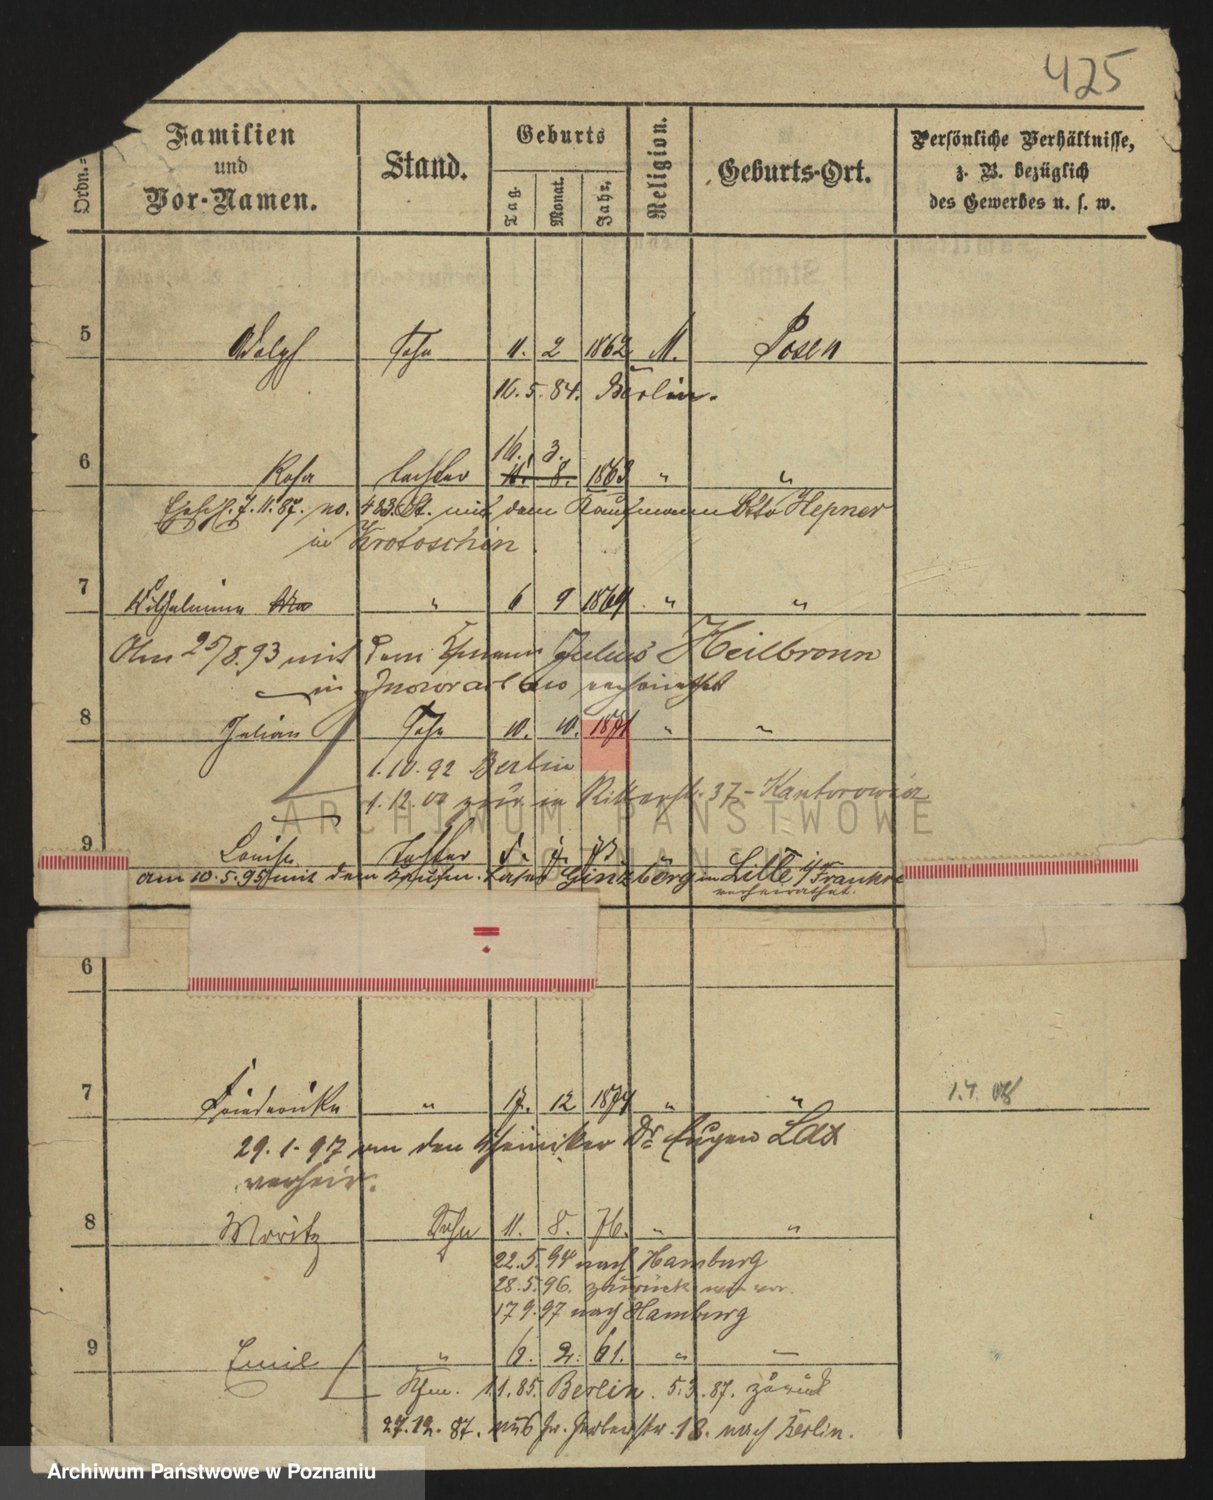 425
Ordn.-
Familien und Vor-Namen.
Stand.
Geburts
Tag. Monat. Jahr.
Religion.
Geburts-Ort.
Persönliche Verhältnisse, z. B. bezüglich des Gewerbes u. s. w.
5 Adolph Sohn 11. 2 1862 M. Posen
16. 5. 84. Berlin.
16. 3.
6 Rosa Tochter 11. 8. 1863 " "
7. 11. 87. no. 483. St. mit dem Kaufmann Otto Hepner
in Krotoschin
7 Wilhelmine " 6 9 1864 " "
Am 25/8. 93 mit dem Kfmann Julius Heilbronn
in Inowrazlaw verheirathet
8 Julian Sohn 10. 10. 1871 " "
1. 10. 92 Berlin
1. 12. 00 zur. in Ritterstr. 37 - Kantorowicz
ARCHIWUM PAŃSTWOWE
W POZNANIU
9 Louise Tochter 5. 73 "
am 10. 5. 95 mit dem Kaufm. Ginzberg in Lille i/Frankr
verheirathet.
6
7 Friederike " 17. 12 1874 " "
1.4.
29. 1. 97 an den Chemiker Dr. Eugen Lax
verheir.
8 Moritz Sohn 11. 8. 76. " "
22. 5. 94 nach Hamburg
28. 5. 96. zurück
17 9. 97 nach Hamburg
9 Emil " 6. 2. 61. " "
Kfm. 1.1. 85. Berlin. 5. 3. 87. zurück
27. 12. 87. 18. nach Berlin.
Archiwum Państwowe w Poznaniu